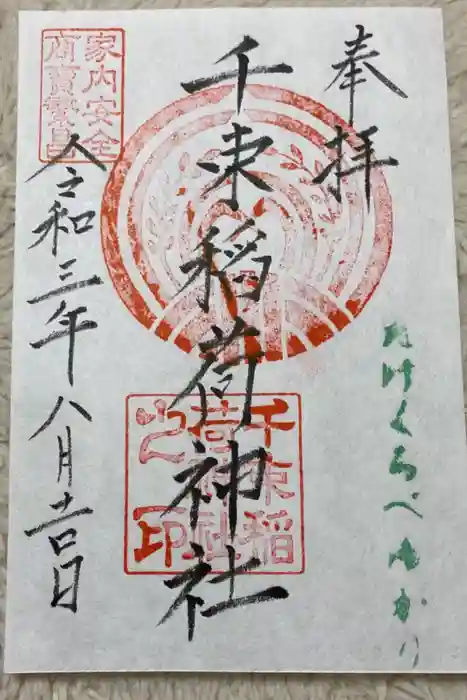 奉拝
たけくらべゆかり
千束稲荷神社
令和三年八月吉日
家内安全
商賣繁昌
千束稲
荷神社
之印